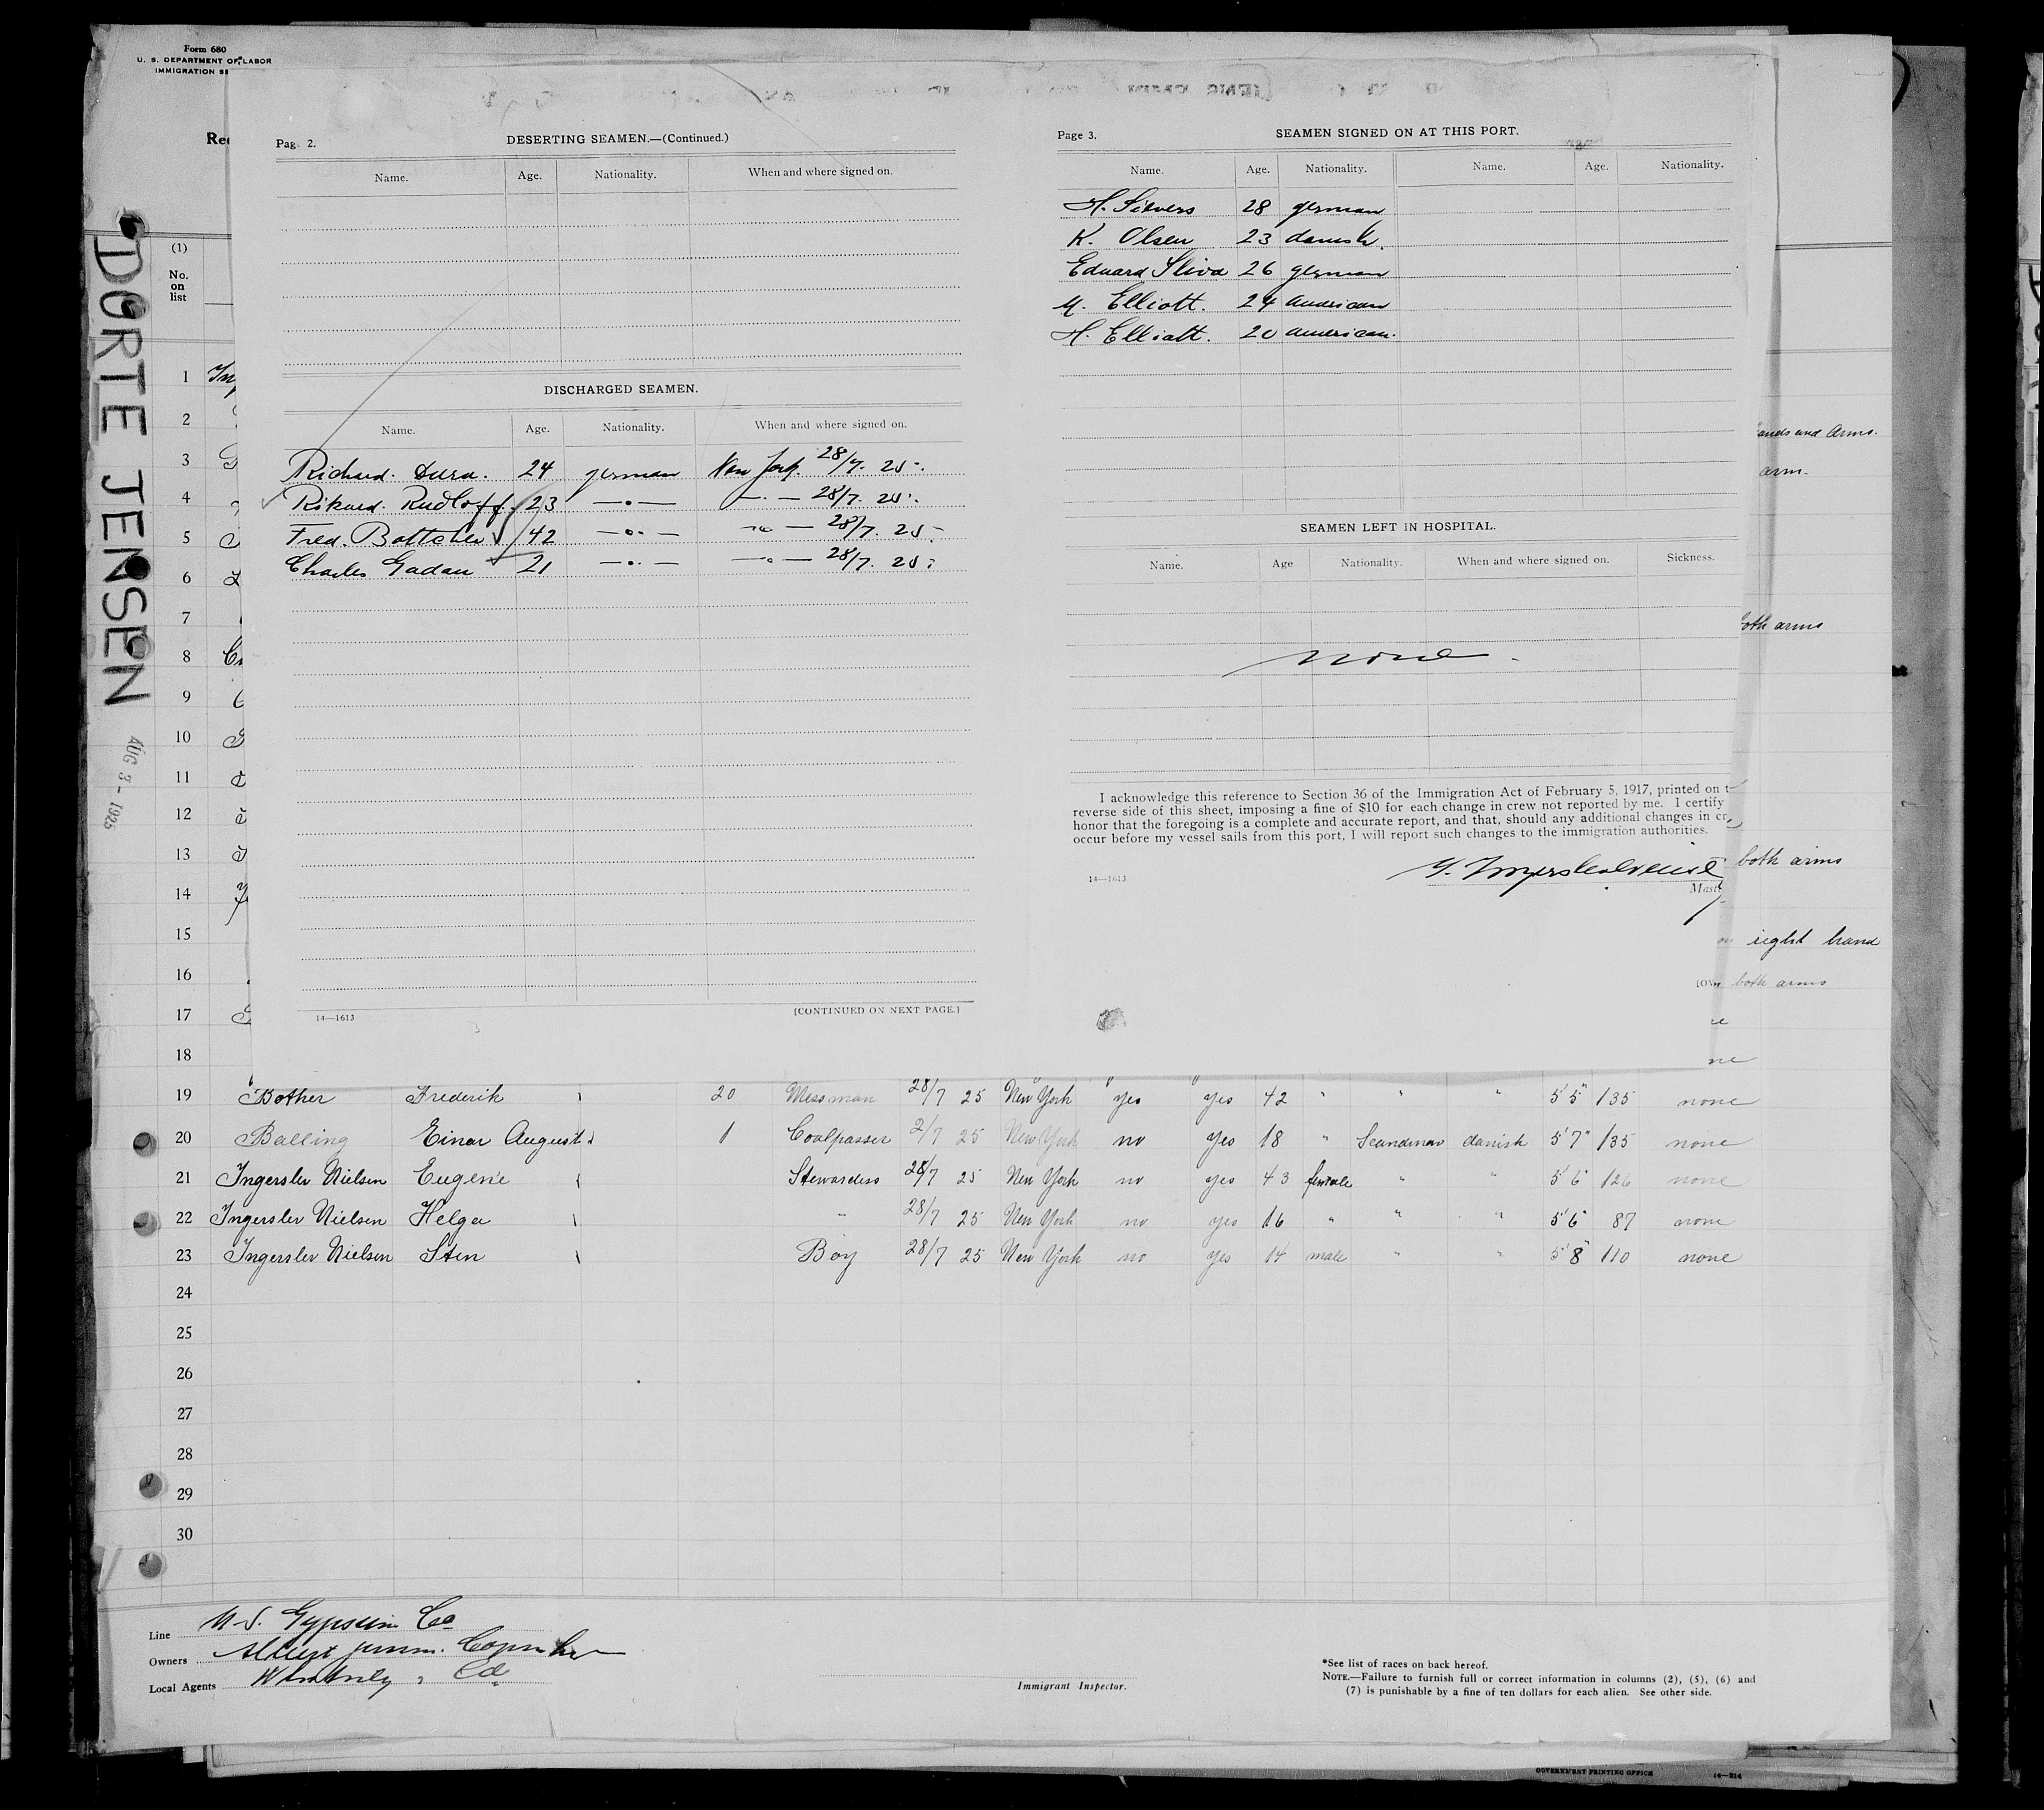 Form 680
U. S. DEPARTMENT OF LABOR
IMMIGRATION SE
Rec
(1)
No.
on
list
DORTE JENSEN
AUG 3 - 1925
Pag 2.
DESERTING SEAMEN.—(Continued.)
Name. Age. Nationality. When and where signed on.
DISCHARGED SEAMEN.
Name. Age. Nationality. When and where signed on.
Richard. Dura. 24 german New York. 28/7. 25.
Rikard. Rudloff. 23 —·— —·— 28/7. 25.
Fred. Bottcher 42 —·— —·— 28/7. 25.
Charles Gadau 21 —·— —·— 28/7. 25.
14—1613
[CONTINUED ON NEXT PAGE.]
Page 3.
SEAMEN SIGNED ON AT THIS PORT.
Name. Age. Nationality. Name. Age. Nationality.
H. Sievers 28 german
K. Olsen 23 danish.
Eduard Sliva 26 german
M. Elliott. 24 american
H. Elliott. 20 american.
SEAMEN LEFT IN HOSPITAL.
Name. Age Nationality. When and where signed on. Sickness.
none.
I acknowledge this reference to Section 36 of the Immigration Act of February 5, 1917, printed on t
reverse side of this sheet, imposing a fine of $10 for each change in crew not reported by me. I certify
honor that the foregoing is a complete and accurate report, and that, should any additional changes in cr
occur before my vessel sails from this port, I will report such changes to the immigration authorities.
14—1613
Mast
ands and Arms.
arm.
both arms
both arms
right hand
both arms
1
2
3
4
5
6
7
8
9
10
11
12
13
14
15
16
17
18
19 Bother Frederik 20 Messman 28/7 25 New York yes yes 42 " " " 5'5" 135 none
20 Balling Einar August 1 Coalpasser 2/7 25 New York no yes 18 " Scandinav danish 5'7" 135 none
21 Ingerslev Nielsen Eugenie Stewardess 28/7 25 New York no yes 43 female " " 5'6 126 none
22 Ingerslev Nielsen Helga " 28/7 25 New York no yes 16 " " " 5'6 87 none
23 Ingerslev Nielsen Sten Boy 28/7 25 New York no yes 14 male " " 5'8" 110 none
24
25
26
27
28
29
30
Line U.S. Gypsum Co
Owners Albert Jensen. Copenh
Local Agents Co
Immigrant Inspector.
*See list of races on back hereof.
NOTE.—Failure to furnish full or correct information in columns (2), (5), (6) and
(7) is punishable by a fine of ten dollars for each alien. See other side.
GOVERNMENT PRINTING OFFICE 14—214